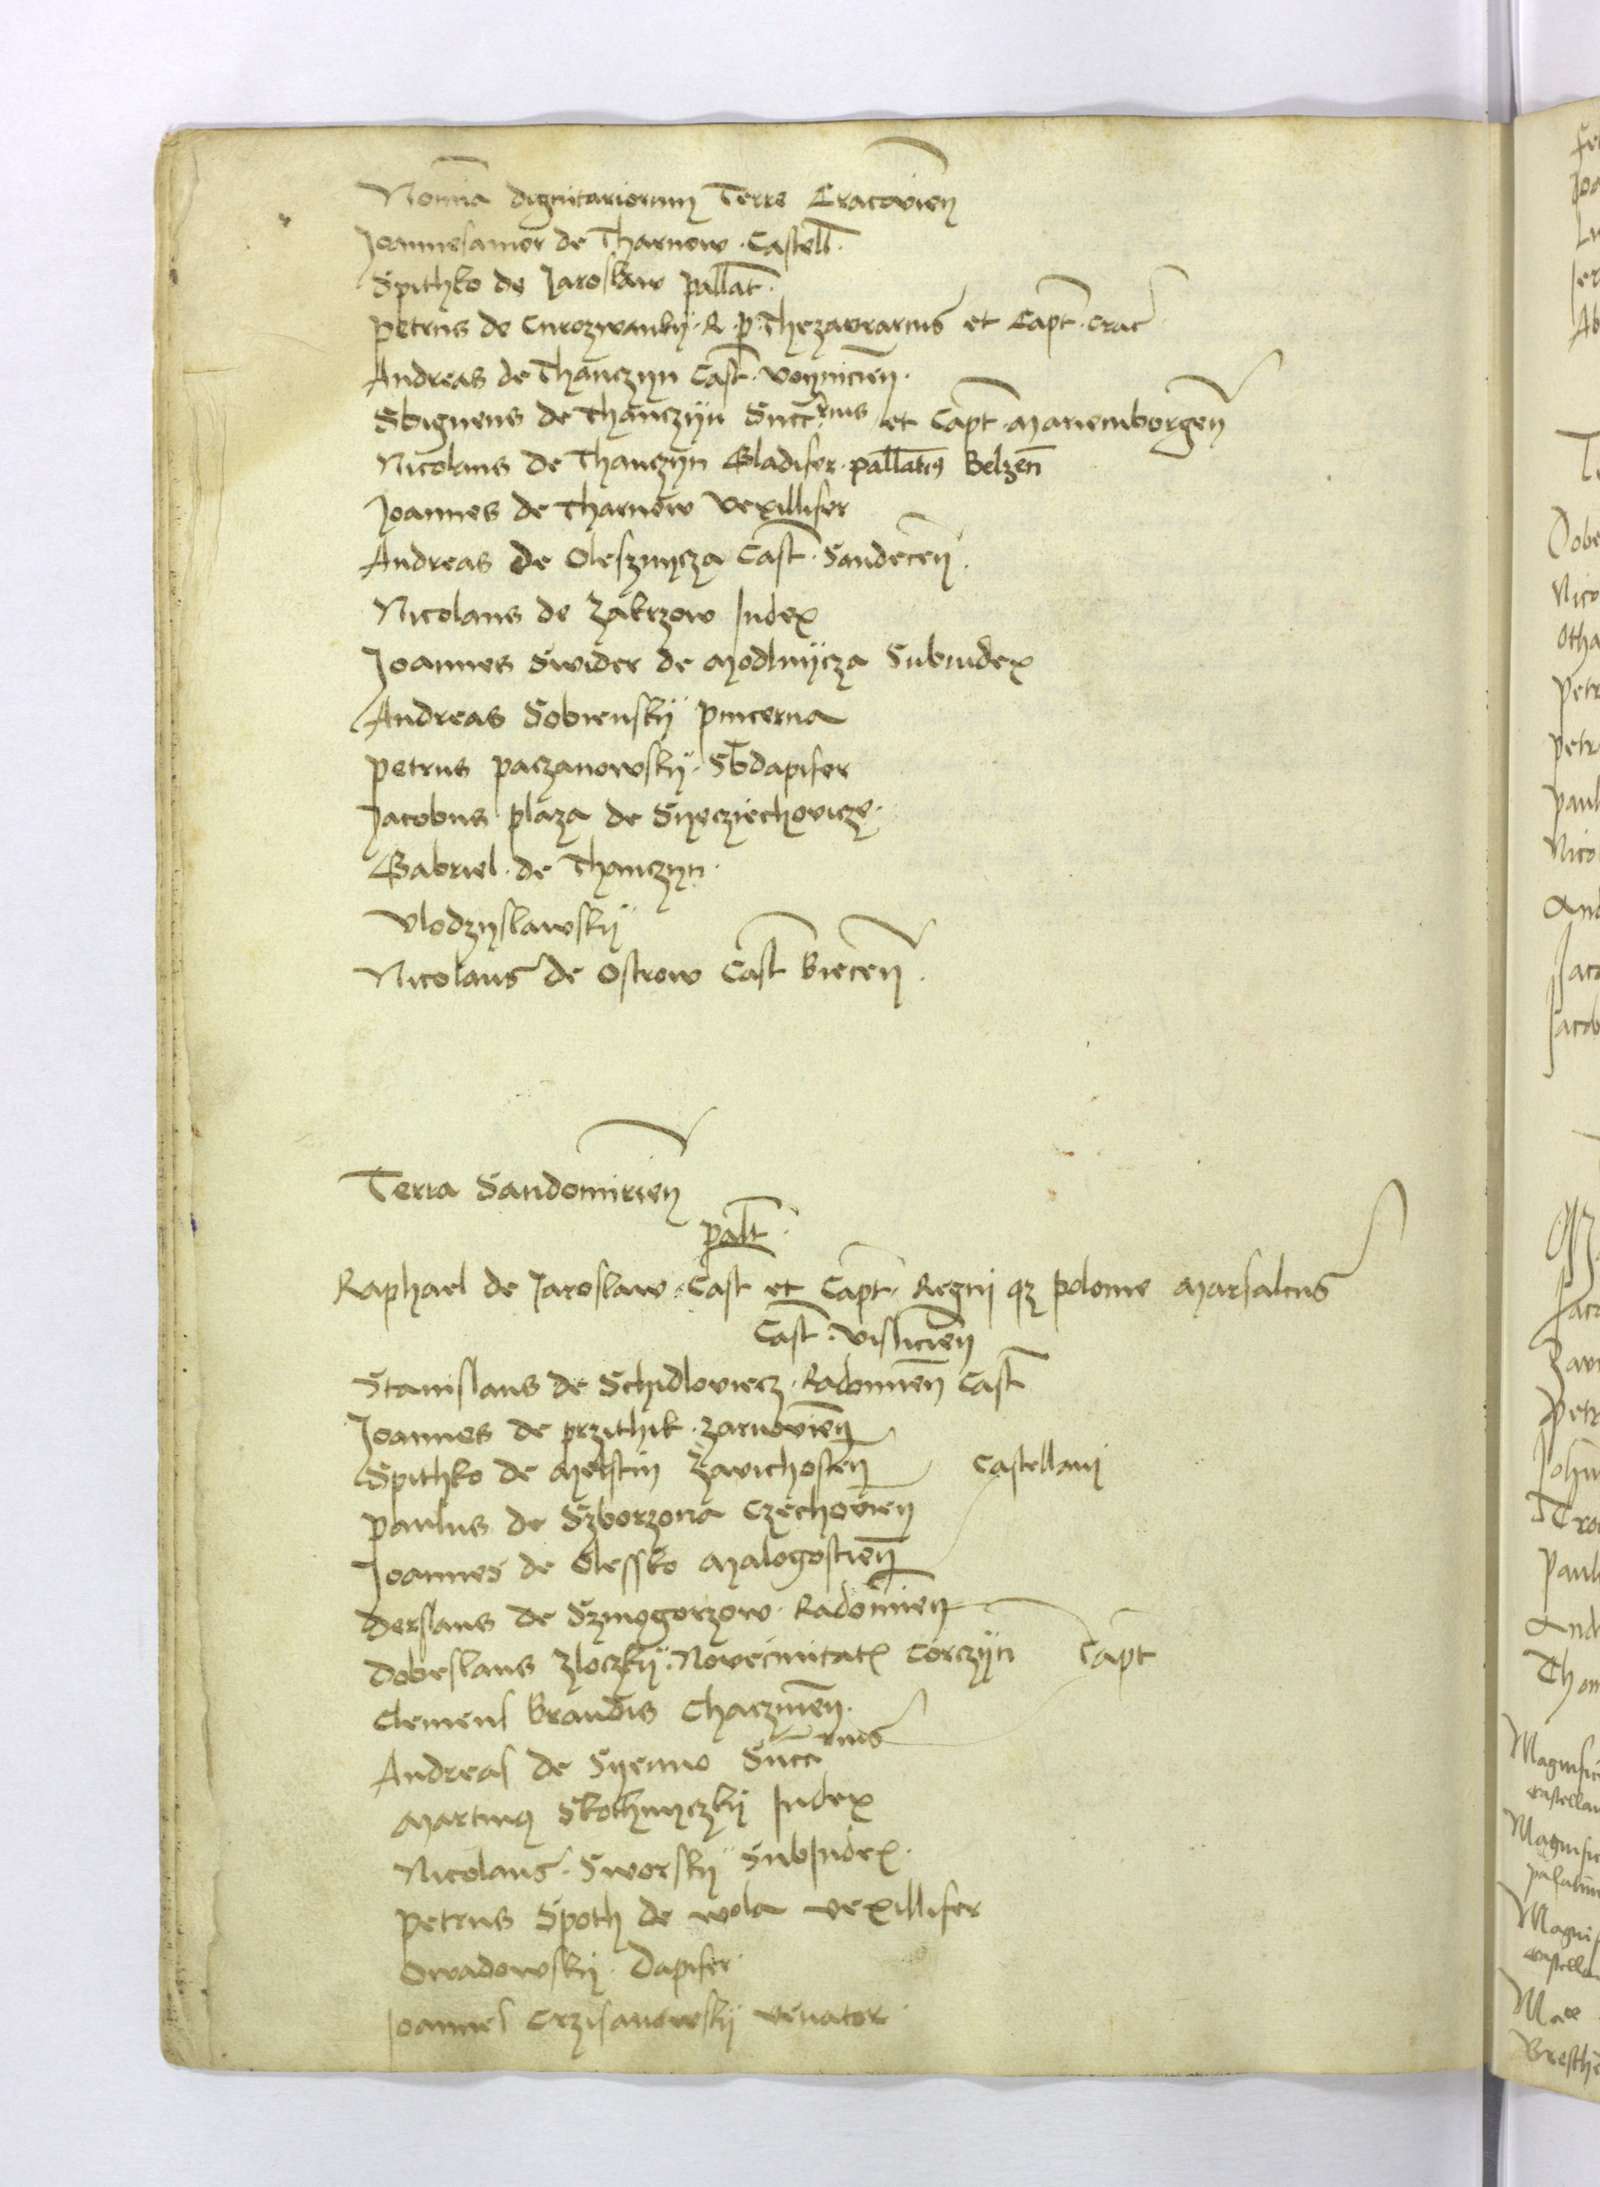 Nomina dignitariorum Terre Cracovien
Joannesamor de Tharnow Castell.
Spithko de Jaroslaw pallat.
Petrus de Curozwanky R. p. Thezaurarius et Capt. crac
Andreas de Thanczyn Cast. Voynicien.
Sbigneus de Thanczyn Succrius et Capt Mariemborgen
Nicolaus de Thanczyn Gladifer pallatus Belzen
Joannes de Tharnow Vexillifer
Andreas de Olesznycza Cast. Sandecen.
Nicolaus de Zakrzow Judex
Joannes Swider de Modlnycza Subiudex
Andreas Sobiensky pincerna
Petrus paczanowsky Sbdapifer
Jacobus plaza de Syecziechovicze.
Gabriel de Thanczyn
Vlodzyslawsky
Nicolaus de Ostrow Cast Biecen.
Terra Sandomirien
palt.
Raphael de Jaroslaw Cast et Capt. Regni qz polonie Marsalcus
Cast. Vislicien
Stanislaus de Schidloviecz Radomien Cast
Joannes de przithik zarnovien
Spithko de Melstin Zavichosten Castellani
Paulus de Szborzona Czechovien
Joannes de Olessko Malogostien
Derslaus de Szmogorzow Radomien
Dobeslaus Zloczky Novecivitatis Corczyn Capt
Clemens Brandis Chaczinen.
Andreas de Syenno Succrius
Martinus Skothnyczky Judex
Nicolaus Sworsky SubJudex.
Petrus Spoth de wola vexillifer
Owadowsky Dapifer
Joannes Crzisanowsky venator